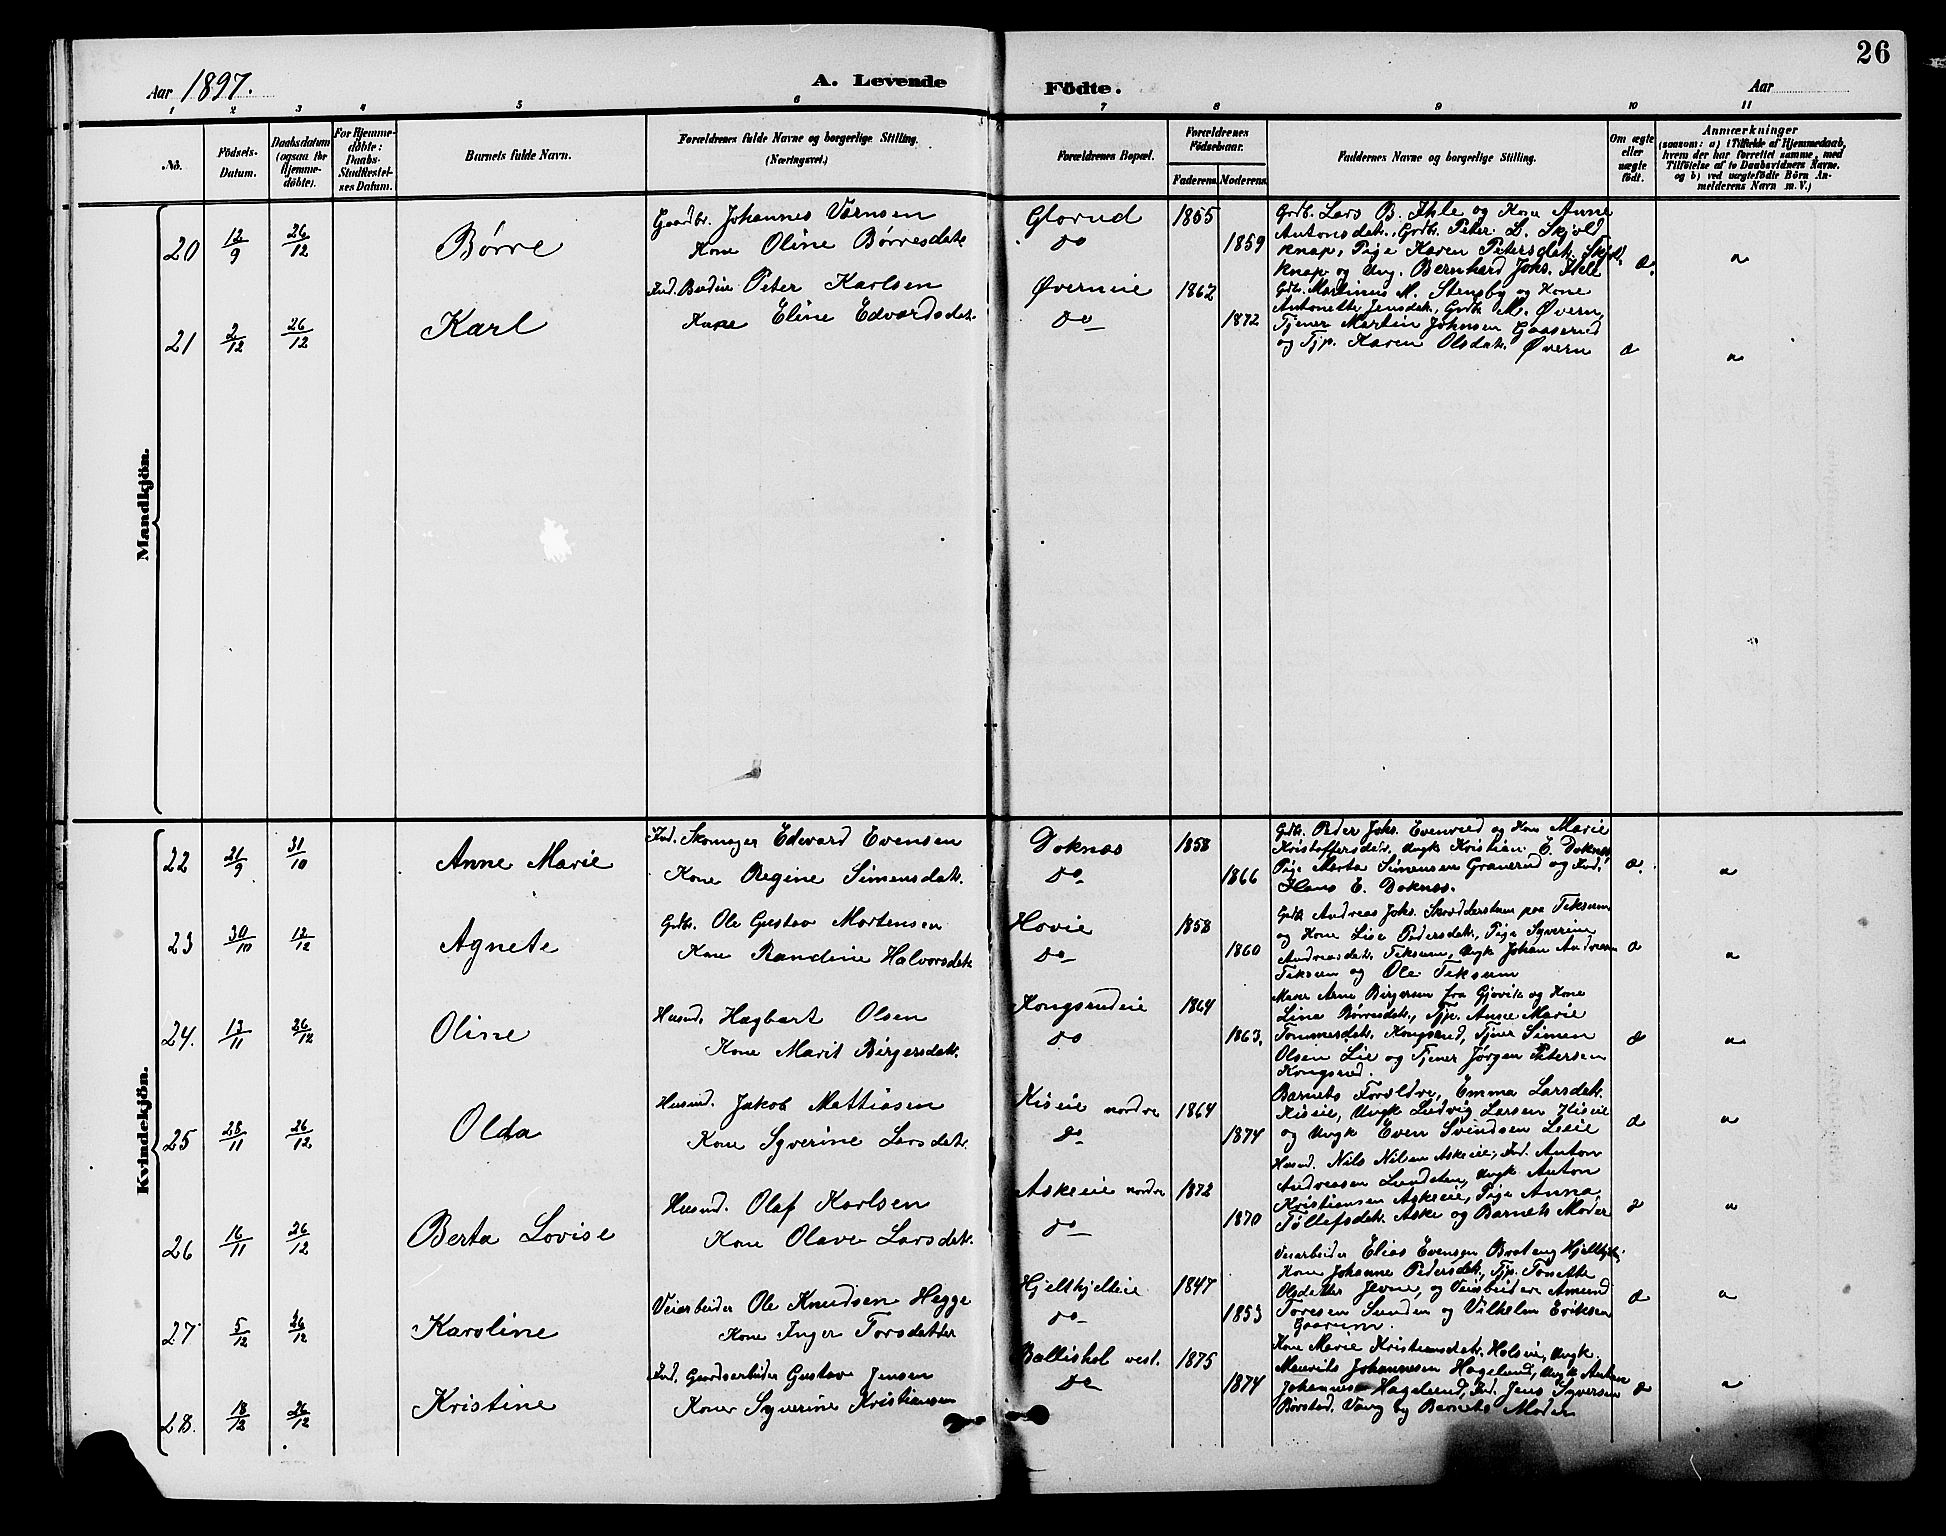 Aar 1897.
A. Levende Födte.
Aar
26
1 2 3 4 5 6 7 8 9 10 11
No.
Födsels-Datum.
Daabsdatum (ogsaa for Hjemme-döbte).
For Hjemme-döbte: Daabs-Stadfæstel-ses Datum.
Barnets fulde Navn.
Forældrenes fulde Navne og borgerlige Stilling. (Næringsvei.)
Forældrenes Bopæl.
Forældrenes Födselsaar.
Faderens. Moderens.
Faddernes Navne og borgerlige Stilling.
Om ægte eller uægte födt.
Anmærkninger
(saasom: a) i Tilfælde af Hjemmedaab,
hvem der har forrettet samme, med
Tilföielse af to Daabsvidners Navne.
og b) ved uægtefödte Börn An-
melderens Navn m. V.)
Mandkjön.
20 12/9 26/12 Børre
Gaardbr. JohannesVærnsen
Kone Oline Børresdatr.
Glorud
do
1855
1859
Grdb. Lars B. Ihle og Kone Anne
Antonsdatr., Grdbr. Peter L. Skjöld
knap, Pige Karen Petersdatr. Skjöld
knap og Ung. Bernhard Johs. Ihle
æ.
21 2/12 26/12 Karl
Ind. Peter Karlsen
Kone Eline Edvardsdatr.
Øverneie
do
1862
1872
Gdb. Martinus M. Stensby og Kone
Antonette Jensdatr., Grdb. M. Øvern,
Tjener Martin Johnsen Gaaserud
og Tjp. Karen Olsdatr. Øvern
æ
Kvindekjön.
22 21/9 31/10 Anne Marie
Ind. Skomager Edvard Evensen
Kone Regine Simensdatr.
Doknæs
do
1858
1866
Gdb. Peder Johs. Evenrud og Kone Marie
Kristoffersdatr, Ungk Kristian E. Doknæs
Pige Marta Simensen Graverud og Ind.
Hans E. Doknæs.
æ.
23 30/10 12/12 Agnete
Grdb. Ole Gustav Mortensen
Kone Randine Halvorsdatr.
Hovie
do
1858
1860
Gdb Andreas Johs. Skrædderstuen paa Teksum
og Kone Lise Pedersdatr., Pige Syverine
Andreasdatr. Teksum, Ungk Johan Andresen
Teksum og Ole Teksum
æ
24. 13/11 26/12 Oline
Husmd. Hagbart Olsen
Kone Marit Birgersdatr.
Kongsrudeie
do
1864
1863.
Murer Arne Birgersen fra Gjøvik og Kone
Lina Børresdatr., Tjp. Anne Marie
Tommersdatr. Kongsrud, Tjener Simen
Olsen Lie og Tjener Jørgen Petersen
Kongsrud.
æ
25 28/11 26/12 Olda
Husmd. Jakob Mattiasen
Kone Syverine Larsdatr.
Kiseie nordre
do
1864
1874
Barnets Foreldre, Emma Larsdatr.
Kiseie, Ungk Ludvig Larsen Kiseie
og Ungk Even Svendsen Lieeie
æ
26 16/11 26/12 Berta Lovise
Husmd. Olaf Karlsen
Kone Olave Larsdatr.
Askeeie nordre
do
1872
1870
Husmd. Nils Nilsen Askeeie, Ind. Anton
Andreasen Lundsten, Ungk Anton
Kristiansen Askeeie, Pige Anna
Tollefsdatr. Aske og Barnets Moder
æ
27 5/12 26/12 Karoline
Veiarbeider Ole Knudsen Hegge
Kone Inger Torsdatter
Hjelkhjelteie
do
1847
1853
Veiarbeider Elias Evensen
Kone Johanne Pedersdatr., Tjp. Tonette
Olsdatter Jevne, og Veiarbeidere Amund
Toresen Sunden og Vilhelm Eriksen
Gaarum.
æ
28. 18/12 26/12 Kristine
Ind. Gaardsarbeider Gustav Jensen
Kone Syverine Kristiansen
Ballishol vest.
do
1875
1874
Kone Marie Kristiansdatr. Holsvie, Ungk.
Maurits Johannesen Hagelund, Ungk Anton
Johannesen Hagelund, Ind. Jens Syversen
Børstad, Vang og Barnets Moder
æ